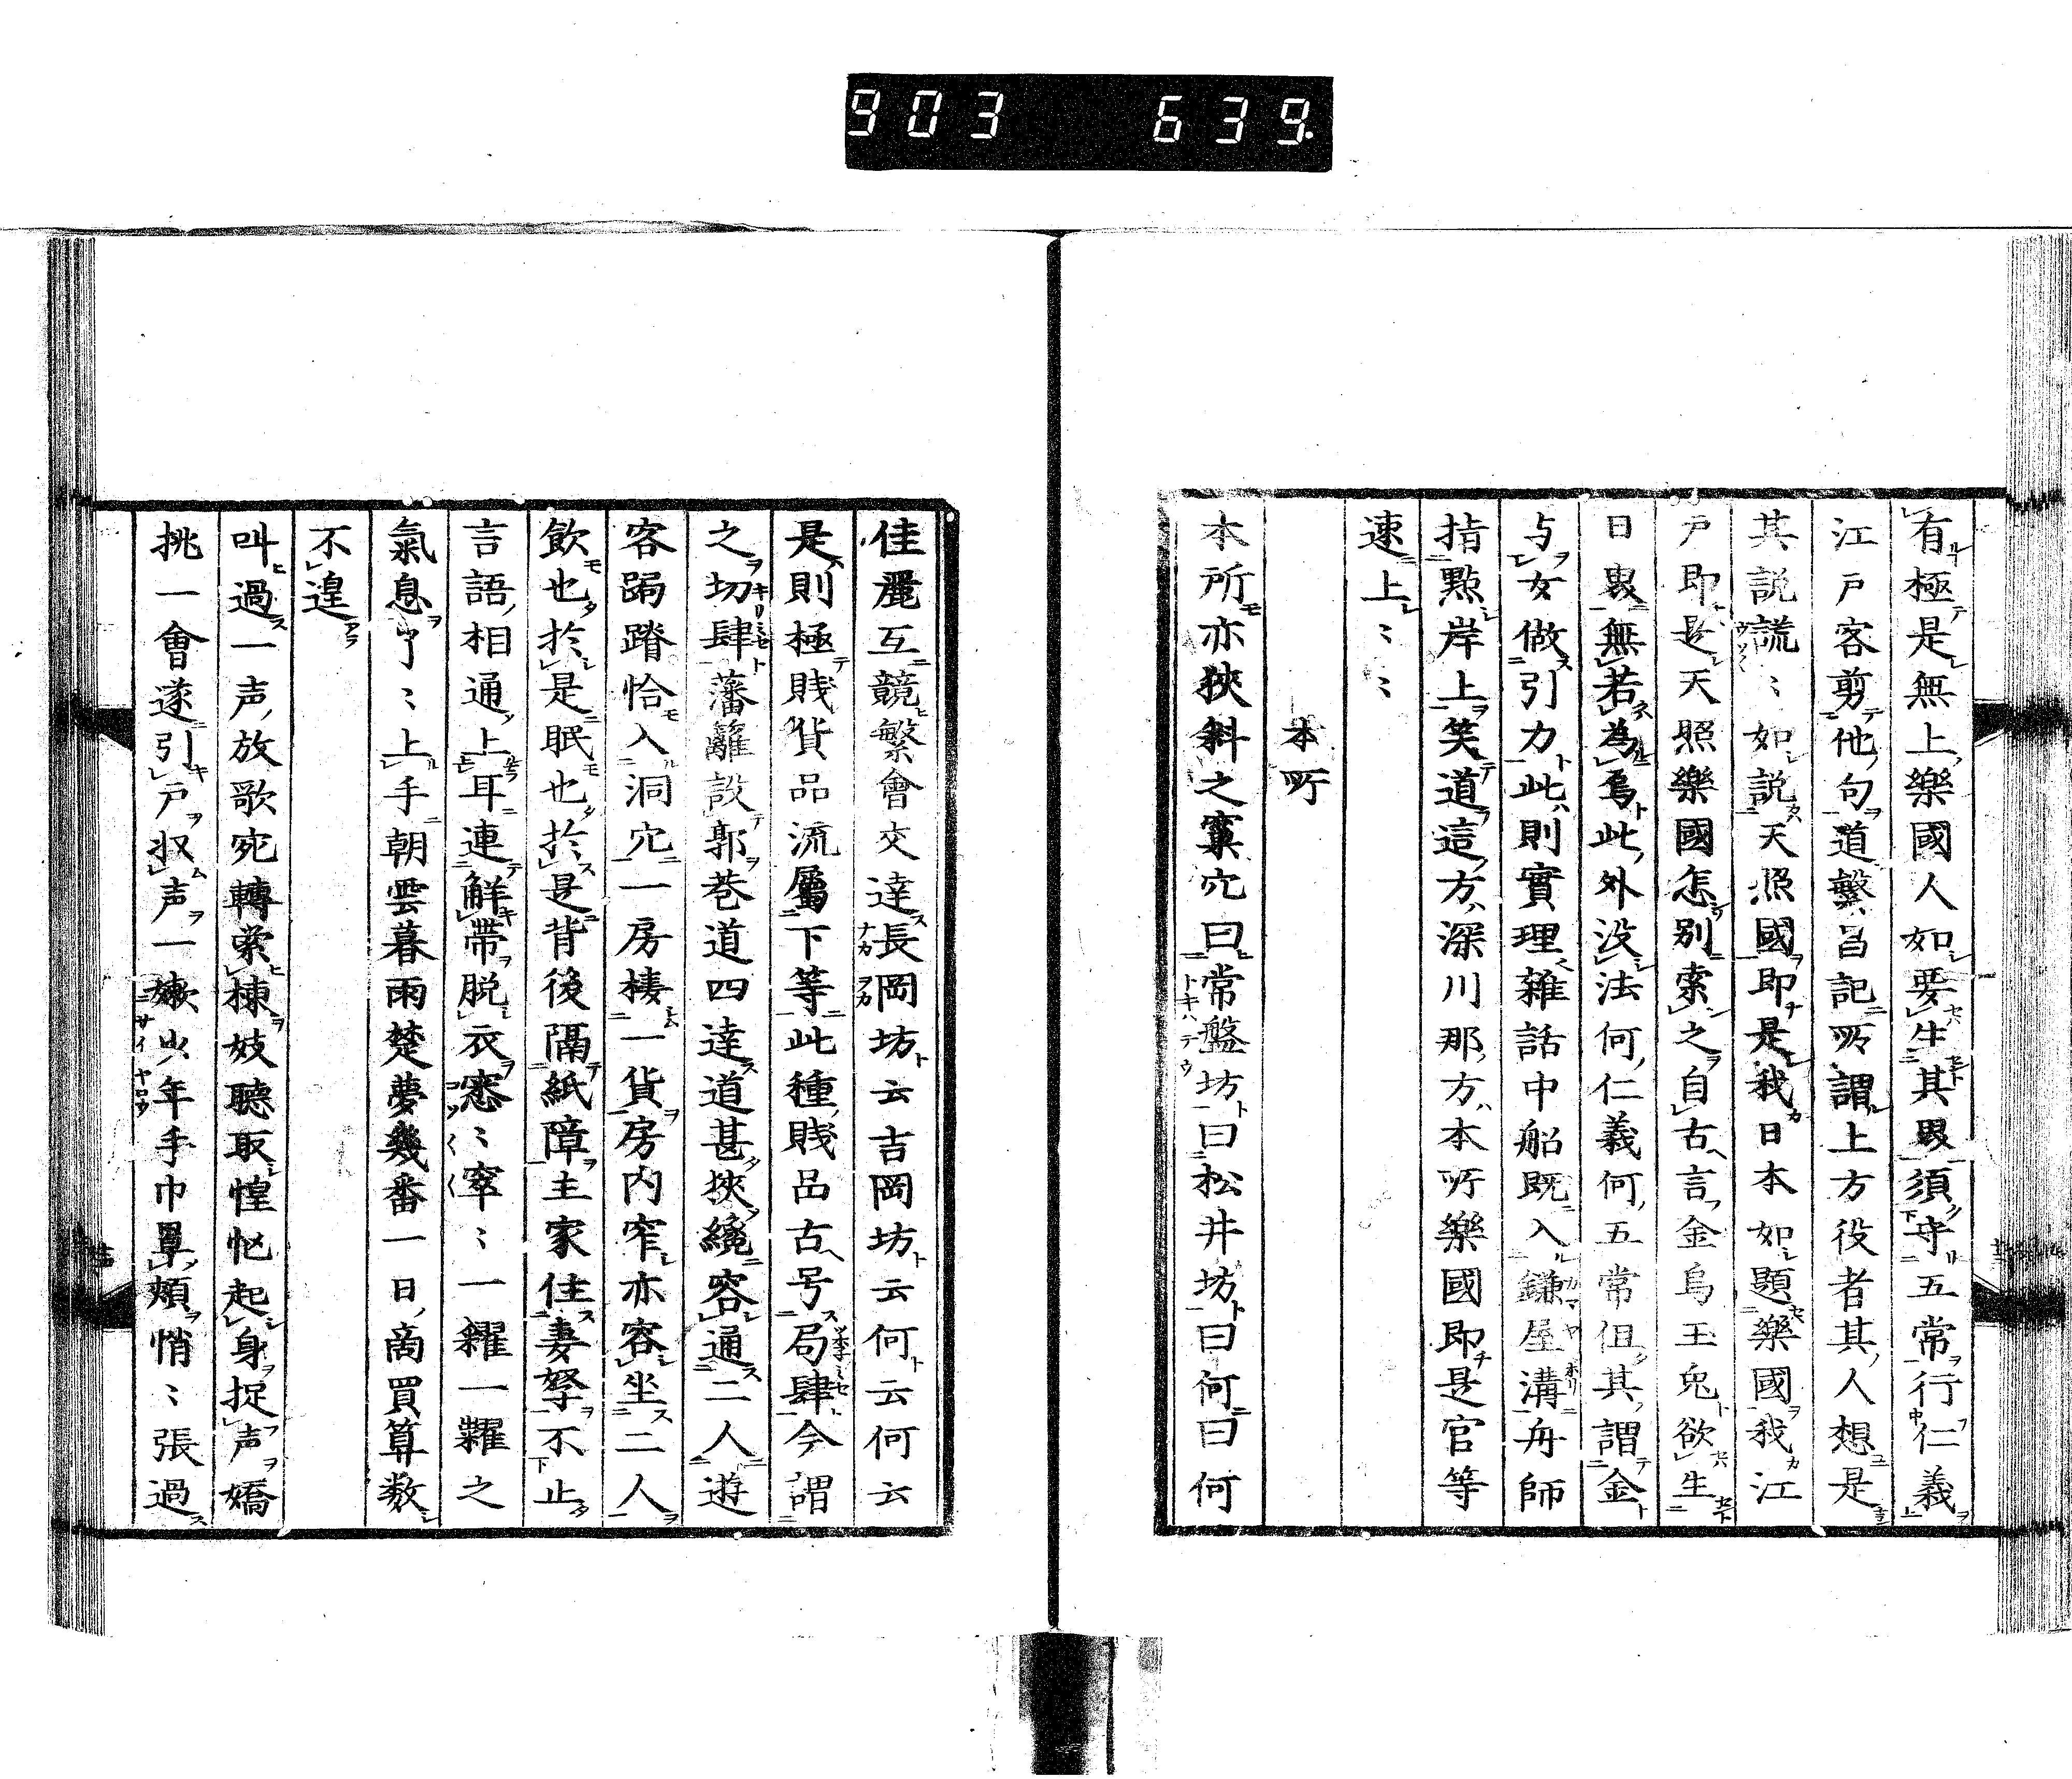 903 639
有極是無上樂國人如要生其界須守五常行仁義
江戸客剪他句道繁昌記所謂上方役者其人想是
其説謊〻如説天照國即是我日本如題樂國我江
戸即是天照樂國怎別索之自古言金烏玉兎欲生
日界無若為焉此外没法何仁義何五常但其謂金
与女做引力此則實理雜話中船既入鎌屋溝舟師
指點岸上笑道這方深川那方本所樂國即是官等
速上〻〻
本所
本所亦狹斜之窠穴曰常盤坊曰松井坊曰何曰何
佳麗互競繁會交達長岡坊云吉岡坊云何云何云
是則極賤貨品流屬下等此種賤品古号局肆今謂
之切肆藩籬設郭巷道四達道甚狹纔容通二人遊
客跼蹐恰入洞穴一房棲一貨房内窄亦容坐二人
飲也於是眠也於是背後隔紙障主家住妻孥不止
言語相通上耳連解帶脱衣窸〻窣〻一糴一糶之
氣息了〻上手朝雲暮雨楚夢幾番一日商買算数
不遑
叫過一声放歌宛轉索棟妓聽取惶忙起身捉声嬌
挑一會遂引戸収声一嫩少年手巾罩頰悄〻張過